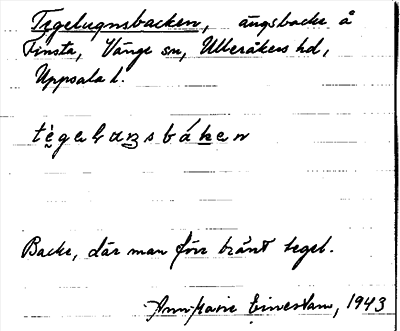 Tegelugnsbacken, ängsbacke å
Finsta, Vänge sn, Ulleråkers hd,
Uppsala l.
Backe, där man förr bränt tegel.
Ann-Marie 1943